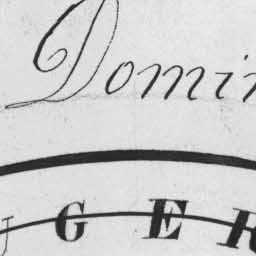 Domin
GER